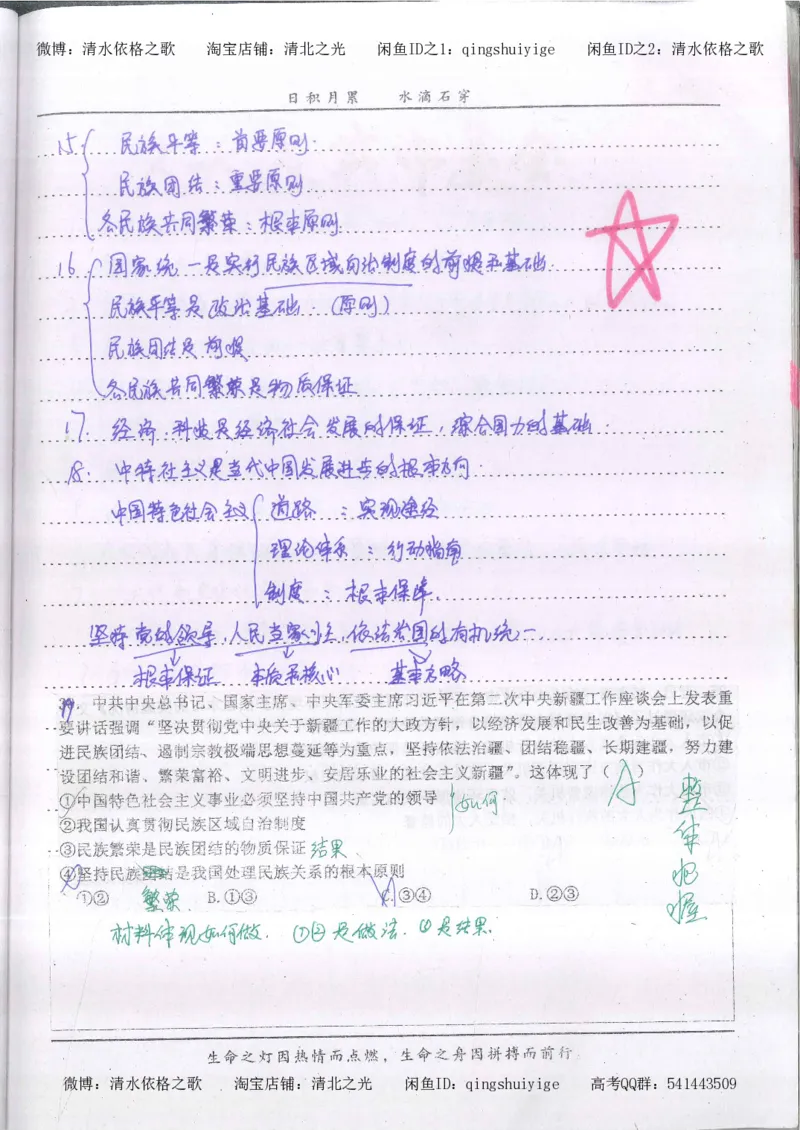 微博：清水依格之歌 淘宝店铺：清北之光 闲鱼ID之1：qingshuiyige 闲鱼ID之2：清水依格之歌
日积月累 水滴石穿
15 民族平等：首要原则
民族团结：重要原则
各民族共同繁荣：根本原则
16 国家统一是实行民族区域自治制度的前提和基础
民族平等是政治基础（原则）
民族团结是前提
各民族共同繁荣是物质保证
17. 经济、科技是经济社会发展的保证，综合国力的基础
18. 中特社主义是当代中国发展进步的根本方向
中国特色社会主义 道路：实现途径
理论体系：行动指南
制度：根本保障
坚持党的领导、人民当家作主、依法治国的有机统一.
根本保证 本质和核心 基本方略
19. 中共中央总书记、国家主席、中央军委主席习近平在第二次中央新疆工作座谈会上发表重
要讲话强调“坚决贯彻党中央关于新疆工作的大政方针，以经济发展和民生改善为基础，以促
进民族团结、遏制宗教极端思想蔓延等为重点，坚持依法治疆、团结稳疆、长期建疆，努力建
设团结和谐、繁荣富裕、文明进步、安居乐业的社会主义新疆”。这体现了（ A ）
①中国特色社会主义事业必须坚持中国共产党的领导 如何
②我国认真贯彻民族区域自治制度
③民族繁荣是民族团结的物质保证 结果
④坚持民族团结是我国处理民族关系的根本原则
繁荣
①② B.①③ ③④ D.②③
整体把握
材料体现如何做. ①②是做法. ④是结果.
生命之灯因热情而点燃，生命之舟因拼搏而前行
微博：清水依格之歌 淘宝店铺：清北之光 闲鱼ID：qingshuiyige 高考QQ群：541443509